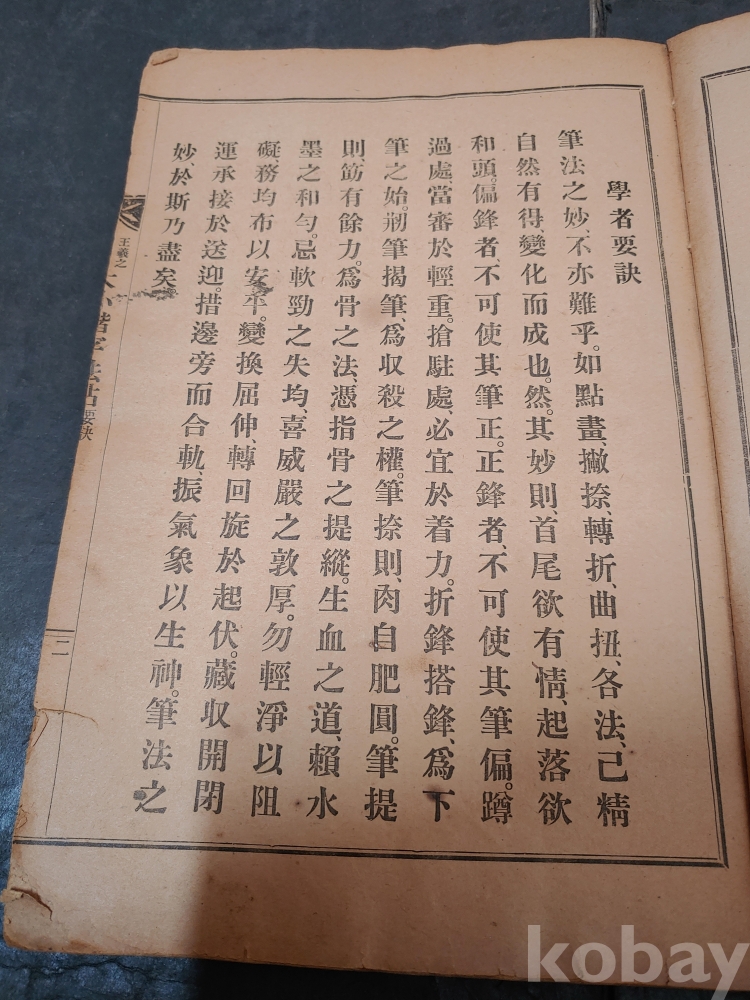 學者要訣
筆法之妙、不亦難乎。如點畫、撇捺、轉折、曲扭、各法、己精
自然有得、變化而成也。然、其妙則、首尾欲有情、起落欲
和頭。偏鋒者、不可使其筆正。正鋒者、不可使其筆偏。蹲
過處、當審於輕重。搶駐處、必宜於着力。折鋒搭鋒、爲下
筆之始。剏筆揭筆、爲収殺之權。筆捺則、肉自肥圓。筆提
則、筋有餘力。爲骨之法、憑指骨之提縱。生血之道、賴水
墨之和勻。忌軟勁之失均、喜威嚴之敦厚。勿輕淨以阻
礙務均布以安平。變換屈伸、轉回旋於起伏。藏収開閉
運承接於送迎。措邊旁而合軌、振氣象以生神。筆法之
妙、於斯乃盡矣。
王羲之
楷字
要訣
二
kobay